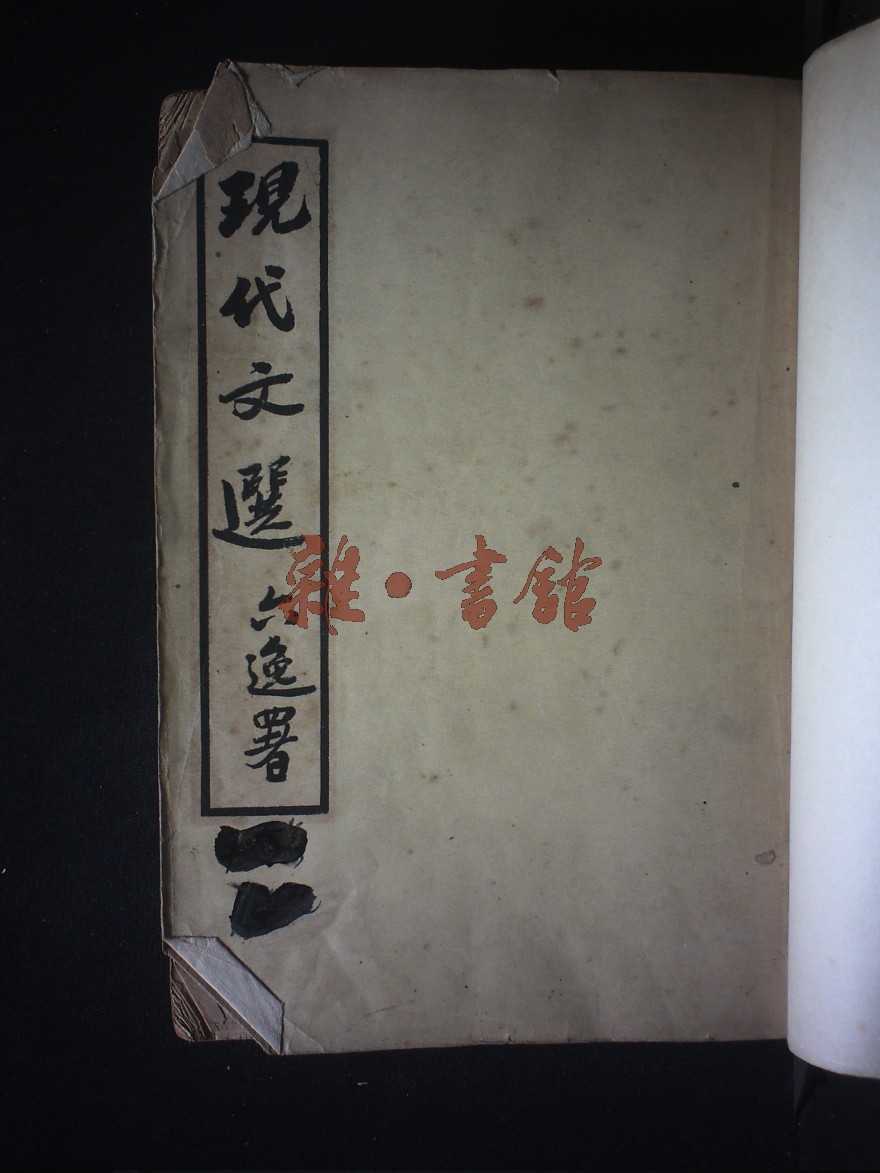 現代文選
六逸署
雜·書館